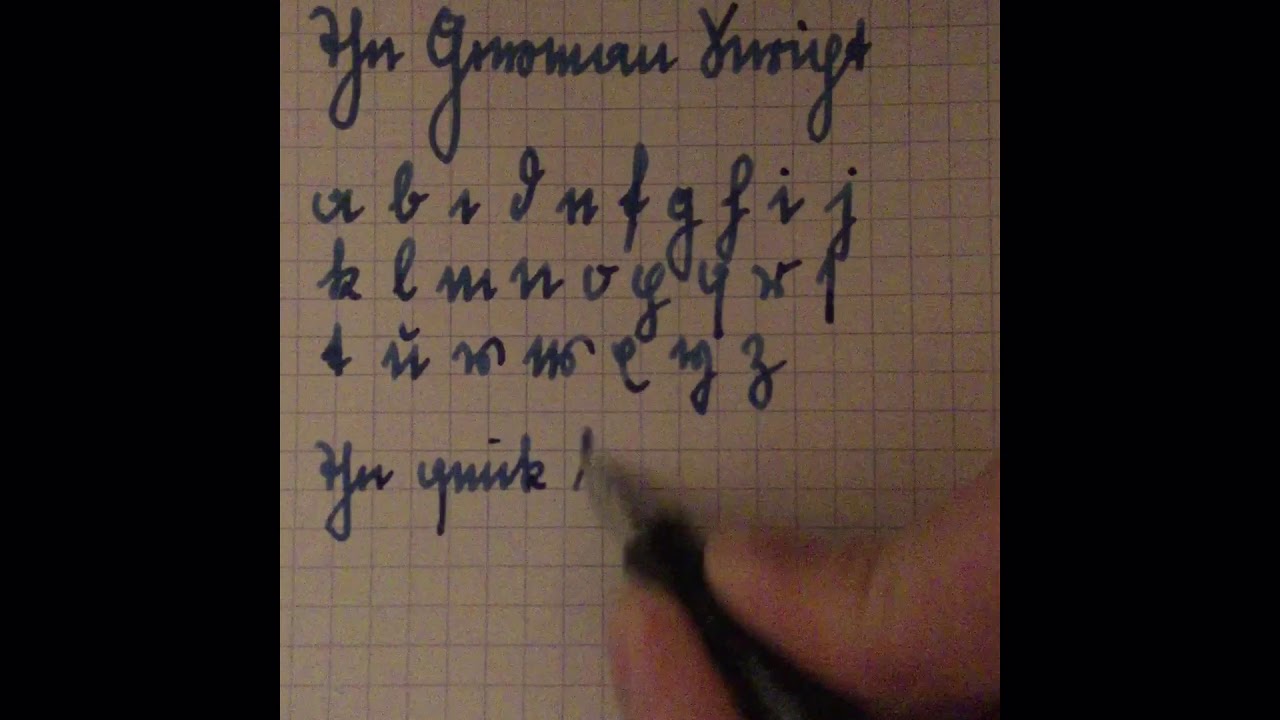 The German Script
a b c d e f g h i j
k l m n o p q r s
t u v w x y z
The quick